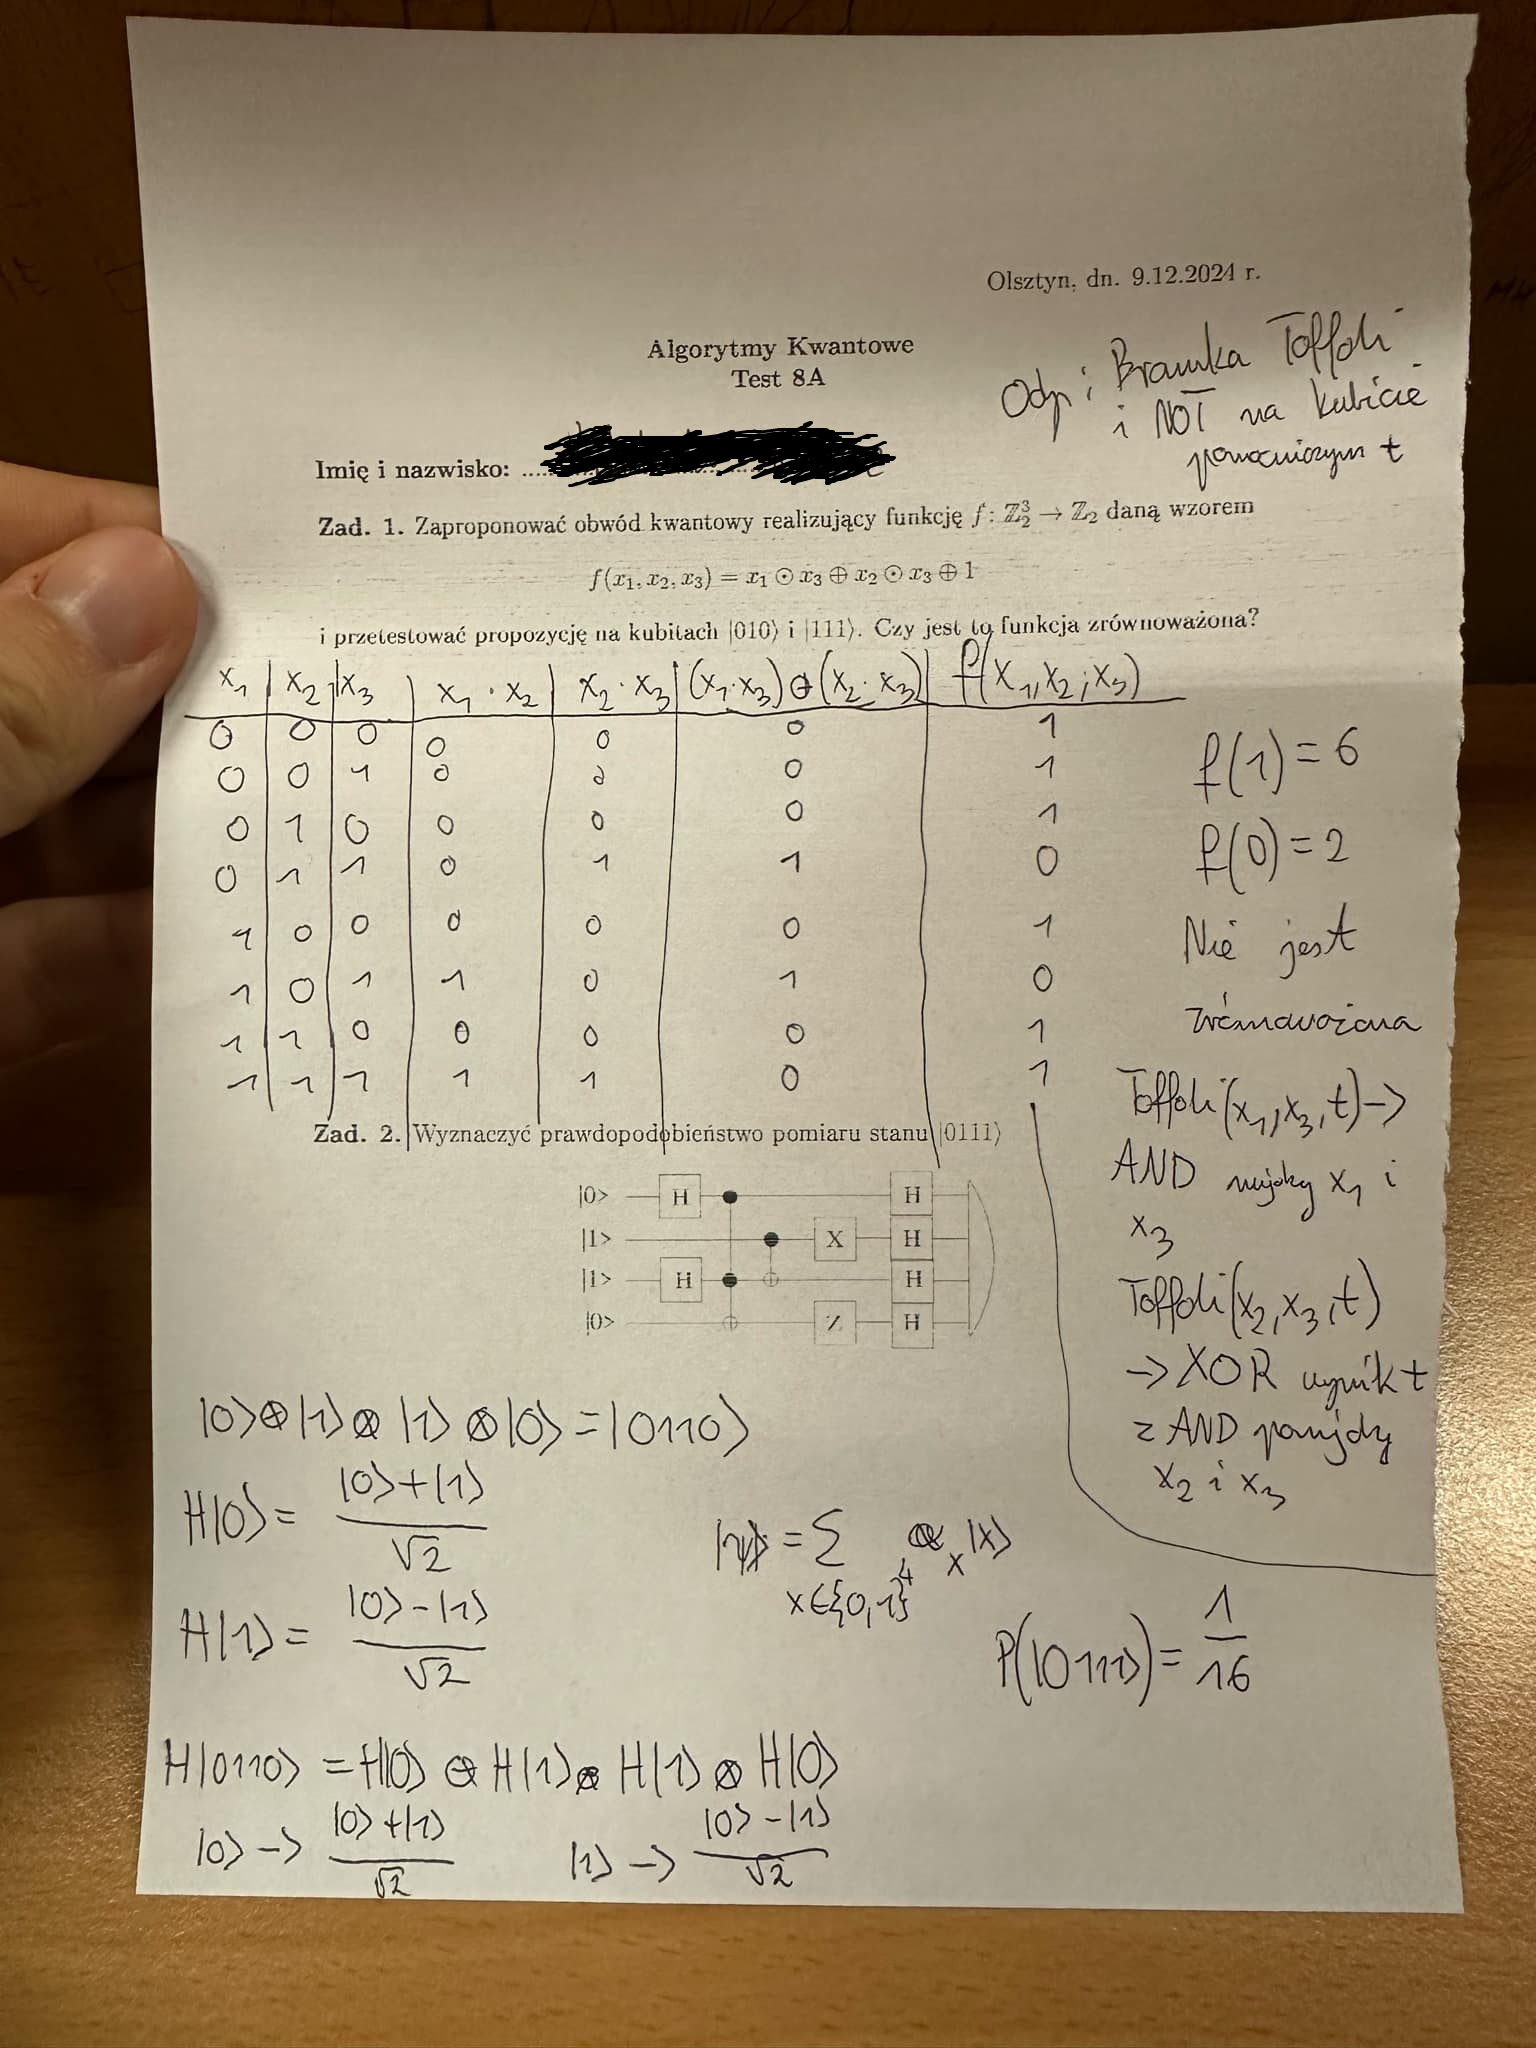 Olsztyn, dn. 9.12.2024 r.
Algorytmy Kwantowe
Test 8A
Odp: Bramka Toffoli
i NOT na kubicie
pomocniczym t
Imię i nazwisko: ......
Zad. 1. Zaproponować obwód kwantowy realizujący funkcję f: ℤ₂³ → ℤ₂ daną wzorem
f(x₁, x₂, x₃) = x₁ ⊙ x₃ ⊕ x₂ ⊙ x₃ ⊕ 1
i przetestować propozycję na kubitach |010⟩ i |111⟩. Czy jest to funkcja zrównoważona?
x₁ | x₂ | x₃ | x₁ · x₂ | x₂ · x₃ | (x₁·x₃) ⊕ (x₂·x₃) | f(x₁,x₂,x₃)
0 0 0 0 0 0 1
0 0 1 0 0 0 1
0 1 0 0 0 0 1
0 1 1 0 1 1 0
1 0 0 0 0 0 1
1 0 1 1 0 1 0
1 1 0 0 0 0 1
1 1 1 1 1 0 1
f(1) = 6
f(0) = 2
Nie jest
zrównoważona
Toffoli(x₁,x₃,t) ->
AND między x₁ i
x₃
Toffoli(x₂,x₃,t)
-> XOR wynik t
z AND pomiędzy
x₂ i x₃
Zad. 2. Wyznaczyć prawdopodobieństwo pomiaru stanu |0111⟩
|0> H H
|1> X H
|1> H H
|0> Z H
|0⟩⊗|1⟩⊗|1⟩⊗|0⟩ = |0110⟩
H|0⟩ = (|0⟩+|1⟩)/√2
H|1⟩ = (|0⟩-|1⟩)/√2
|ψ⟩ = Σ x∈{0,1}⁴ αₓ|x⟩
P(|0111⟩) = 1/16
H|0110⟩ = H|0⟩ ⊗ H|1⟩ ⊗ H|1⟩ ⊗ H|0⟩
|0⟩ -> (|0⟩+|1⟩)/√2 |1⟩ -> (|0⟩-|1⟩)/√2